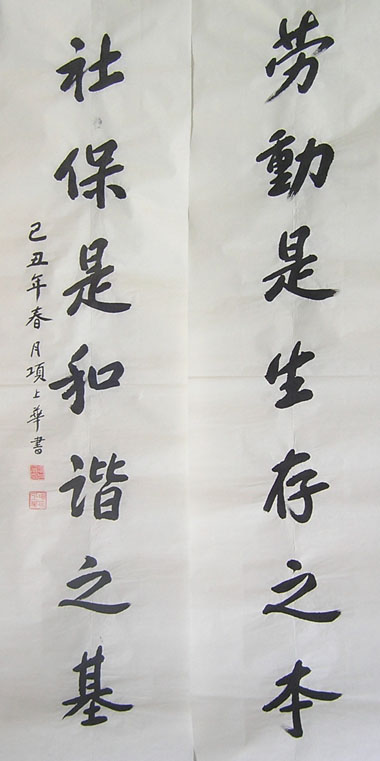 劳動是生存之本
社保是和谐之基
己丑年春月項上華書